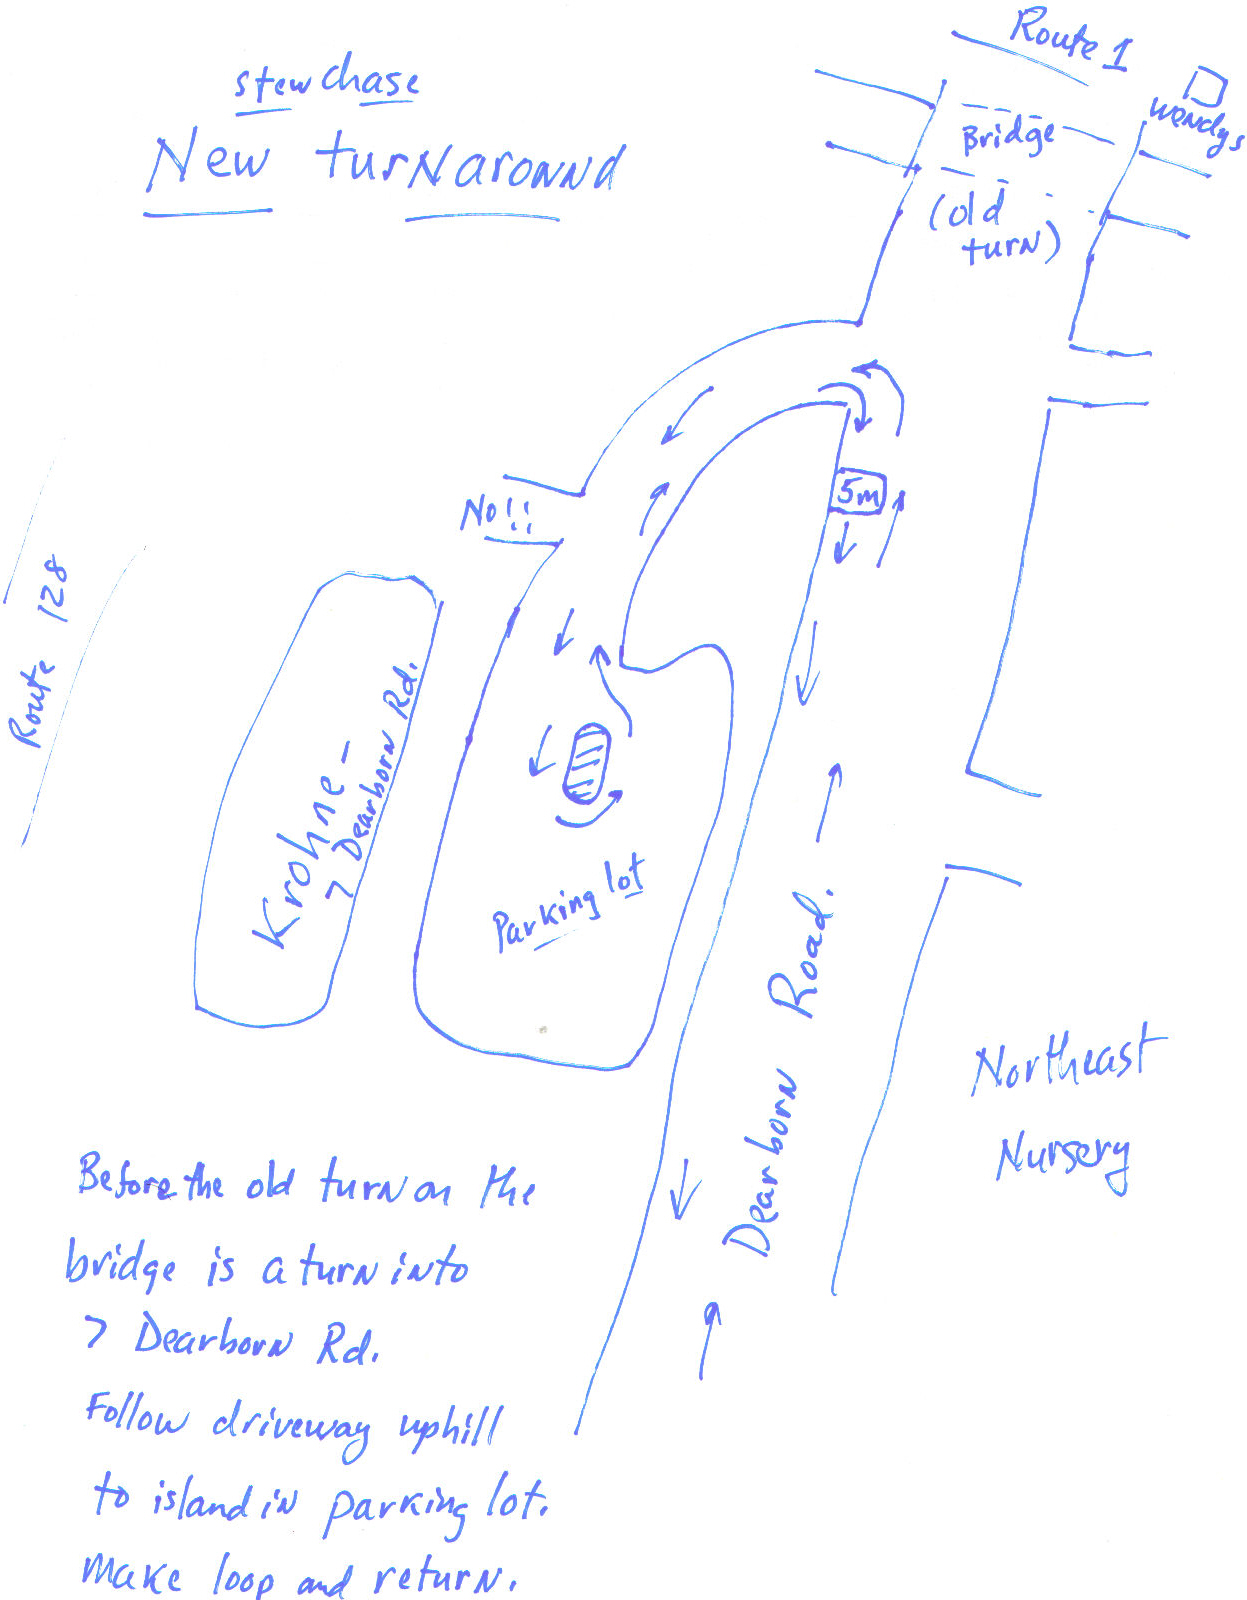 stewchase
New turnaround
Route 1
Wendys
Bridge
(old
turn)
5m
No!!
Route 128
Krohne -
7 Dearborn Rd.
Parking lot
Dearborn Road.
Northeast
Nursery
Before the old turn on the
bridge is a turn into
7 Dearborn Rd.
Follow driveway uphill
to island in parking lot.
Make loop and return.